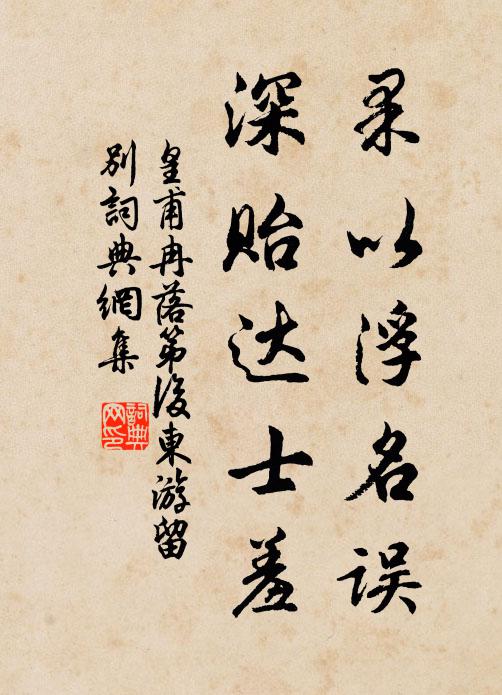 果以浮名误
深贻达士羞
皇甫冉落第後東游留
别詞典網集
詞典
网印